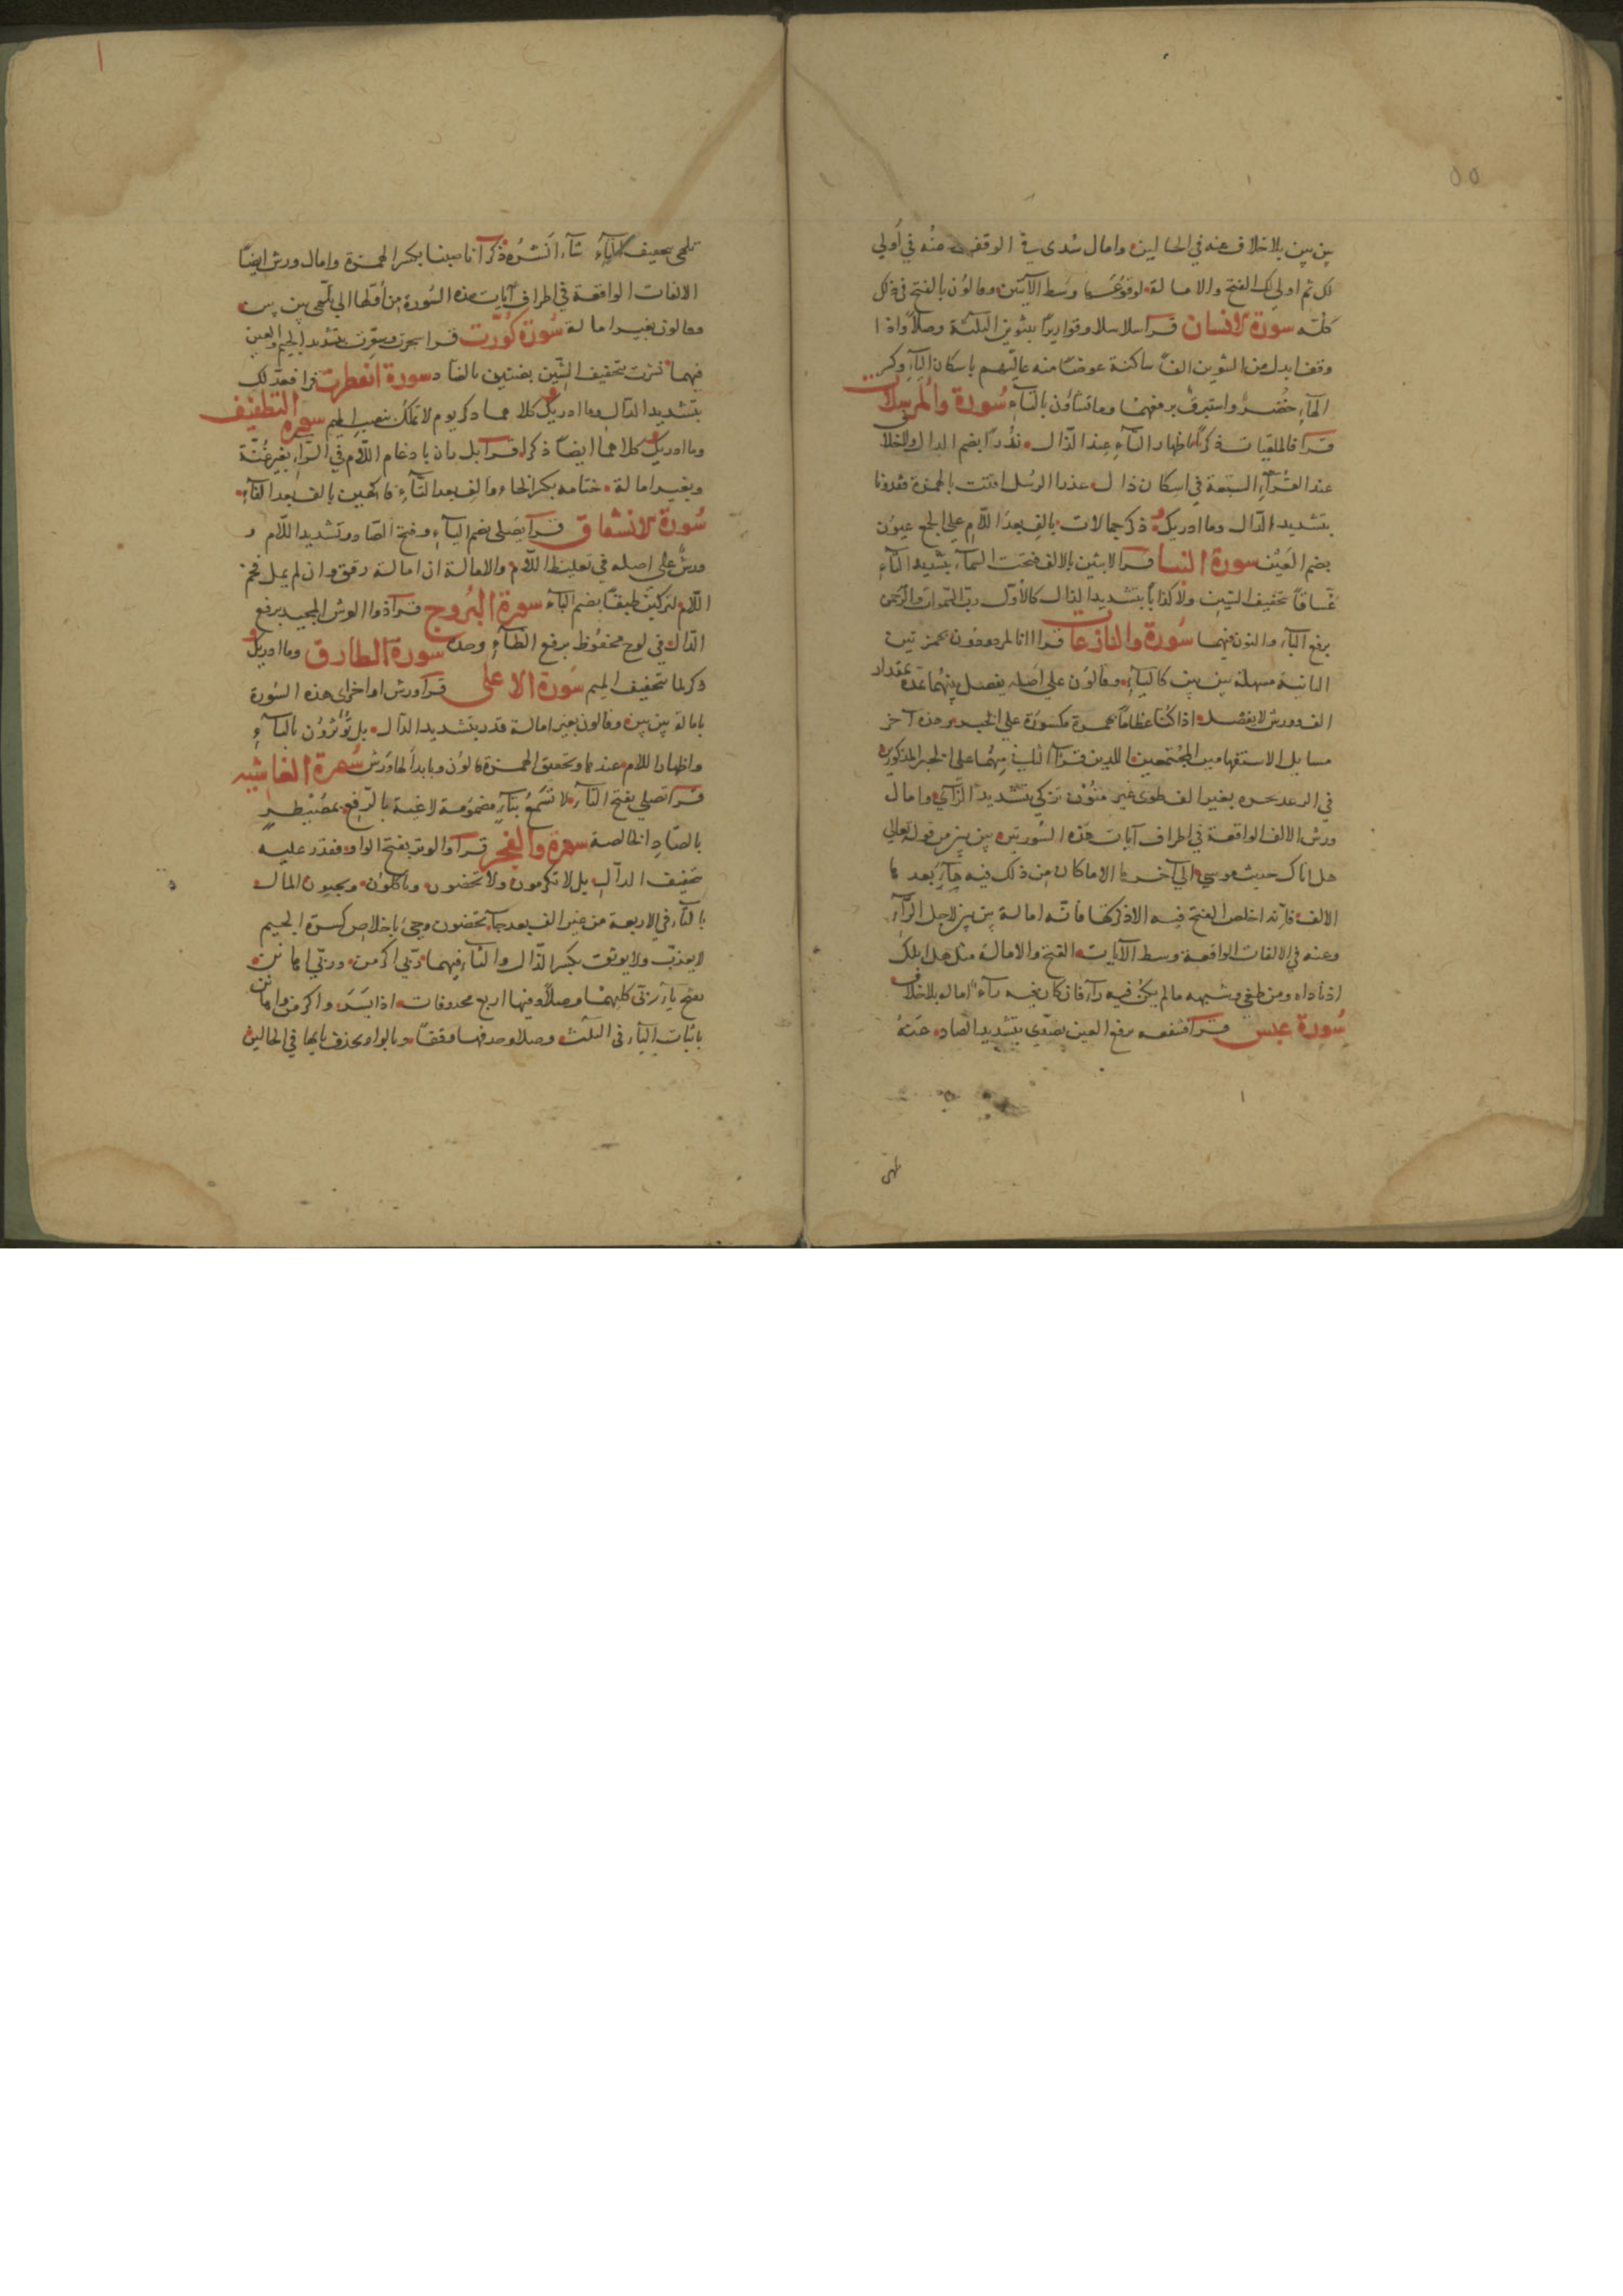 ٥٥
بين بين بلاخلاف عنه في الحالين وامال سدى في الوقف عنه في أولي
لك ثم اولى لك الفتح والامالة لوقوعهما وسط الآيتين وقالون بالفتح في ذلك
كله سورة الانسان قرأ سلاسلا وقواريرا بتنوين الثلثة وصلا واذا
وقف ابدل من التنوين الفا ساكنة عوضا منه عاليهم باسكان الياء وكسر
الهاء خضر واستبرق برفعهما وما تشاؤن بالتاء سورة والمرسلات
قرأ فالملقيات ذكرا باظهار التاء عند الذال نذرا بضم الذال ولاخلاف
عند القراء السبعة في اسكان ذال عذرا الرسل اقتت بالهمزة فقدرنا
بتشديد الدال وما ادريك ذكر جمالات بالف بعد اللام على الجمع عيون
بضم العين سورة النبا قرأ لابثين بالالف فتحت السماء بتشديد التاء
غساقا بتخفيف السين ولا كذابا بتشديد الذال كالأول رب السموات والرحمن
برفع الباء والنون فيهما سورة والنازعات قرأ اانا لمردودون بهمزتين
الثانية مسهلة بين بين كالياء وقالون على اصله يفصل بينهما بمدة بمقدار
الف وورش لا يفصل اذا كنا عظاما بهمزة مكسورة على الخبر وهذه آخر
مسايل الاستفهامين المجتمعين اللذين قرأ الثاني منهما على الخبر المذكورين
في الرعد نخرة بغير الف طوى غير منون تزكى بتشديد الزاي وامال
ورش الالف الواقعة في اطراف آيات هذه السورتين بين بين من قوله تعالى
هل اتاك حديث موسى الى آخرها الا ما كان من ذلك فيه هاء بعد
الالف فانه اخلص الفتح فيه الا ذكرها فانه امالة بين بين لاجل الراء
وعنه في الالفات الواقعة وسط الآيات الفتح والامالة مثل هل اتيك
اذ ناداه ومن طغى وشبهه ما لم يكن فيه راء فان كان فيه راء اماله بلاخلاف
سورة عبس قرأ فتنفعه برفع العين تصدى بتشديد الصاد عنه
تلهى
تلهى بتخفيف الهاء شاء انشره ذكر انا صببنا بكسر الهمزة وامال ورش ايضا
الالفات الواقعة في اطراف آيات هذه السورة من أولها الى تلهى بين بين
وقالون بغير امالة سورة كورت قرأ سجرت وسعرت بتشديد الجيم والعين
فيهما نشرت بتخفيف الشين بضنين بالضاد سورة انفطرت قرأ فعدلك
بتشديد الدال وما ادريك كلاهما ذكر يوم لا تملك بنصب الميم سورة التطفيف
وما ادريك كلاهما ايضا ذكرا قرأ بل ران بادغام اللام في الراء بغير غنة
وبغير امالة ختامه بكسر الخاء والف بعد التاء فاكهين بالف بعد الفاء
سورة الانشقاق قرأ يصلى بضم الياء وفتح الصاد وتشديد اللام و
ورش على اصله في تغليظ اللام والامالة ان امالة رقق وان لم يمل فخم
اللام لتركبن طبقا بضم الباء سورة البروج قرأ ذوا العرش المجيد برفع
الدال في لوح محفوظ برفع الظاء وحده سورة الطارق وما ادريك
ذكر لما بتخفيف الميم سورة الاعلى قرأ ورش اواخر اى هذه السورة
بامالة بين بين وقالون بغير امالة قدر بتشديد الدال بل تؤثرون بالتاء
واظهار اللام عندها وتحقيق الهمزة قالون وبابدالها ورش سورة الغاشية
قرأ تصلى بفتح التاء لا تسمع بتاء مضمومة لاغية بالرفع بمصيطر
بالصاد الخالصة سورة والفجر قرأ والوتر بفتح الواو فقدر عليه
بتخفيف الدال بل لا تكرمون ولا تحضون وتأكلون وتحبون المال
بالتاء في الاربعة من غير الف بعد حاء تحضون وجىء باخلاص كسرة الجيم
لا يعذب ولا يوثق بكسر الذال والثاء فيهما ربي اكرمن وربي اهانن
بفتح ياء ربي كليهما وصلا وفيها اربع محذوفات اذا يسر واكرمن واهانن
باثبات الياء في الثلث وصلا وحذفها وقفا وبالواد بحذف يائها في الحالين